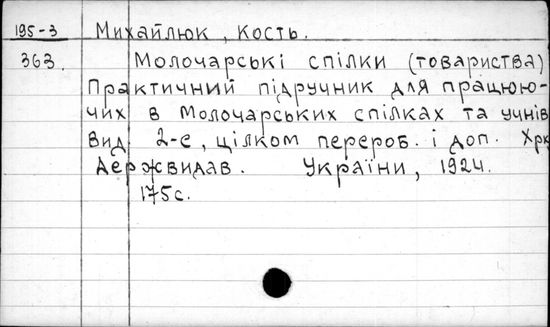 195-3 Михайлюк, Кость.
363. Молочарські спілки (товариства)
Практичний підручник для працюю-
чих в Молочарських спілках та учнів
Вид 2-е, цілком перероб. і доп. Хрк
Держвидав. України, 1924.
175с.